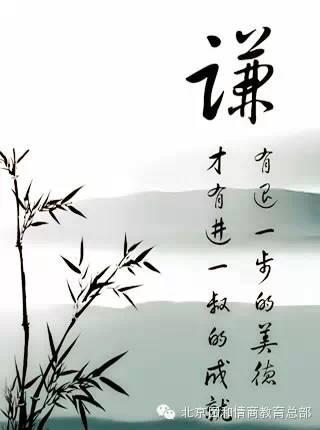 谦
有退一步的美德
才有进一叔的成就
北京和情商教育总部